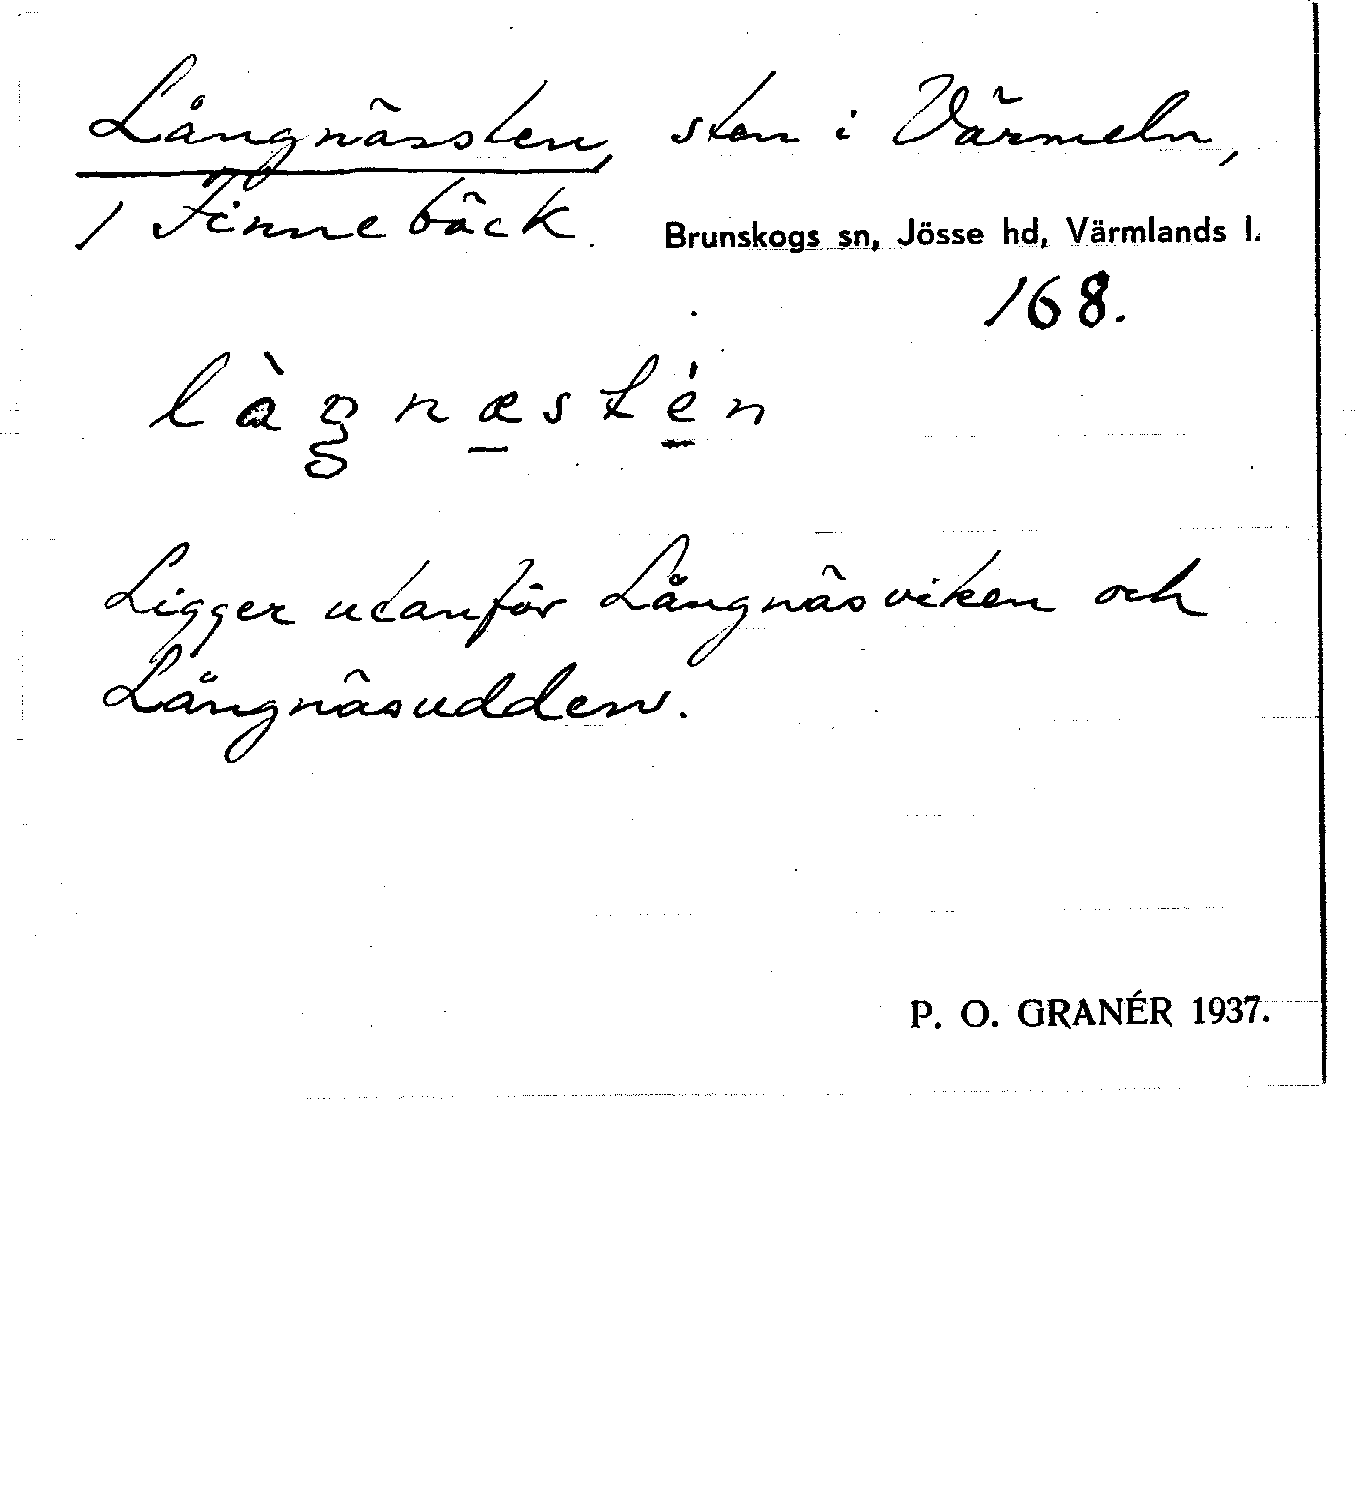 Långnässten, sten i Värmeln,
/ Finnebäck. Brunskogs sn, Jösse hd, Värmlands l.
168.
Ligger utanför Långnäsviken och
Långnäsudden.
P. O. GRANÉR 1937.